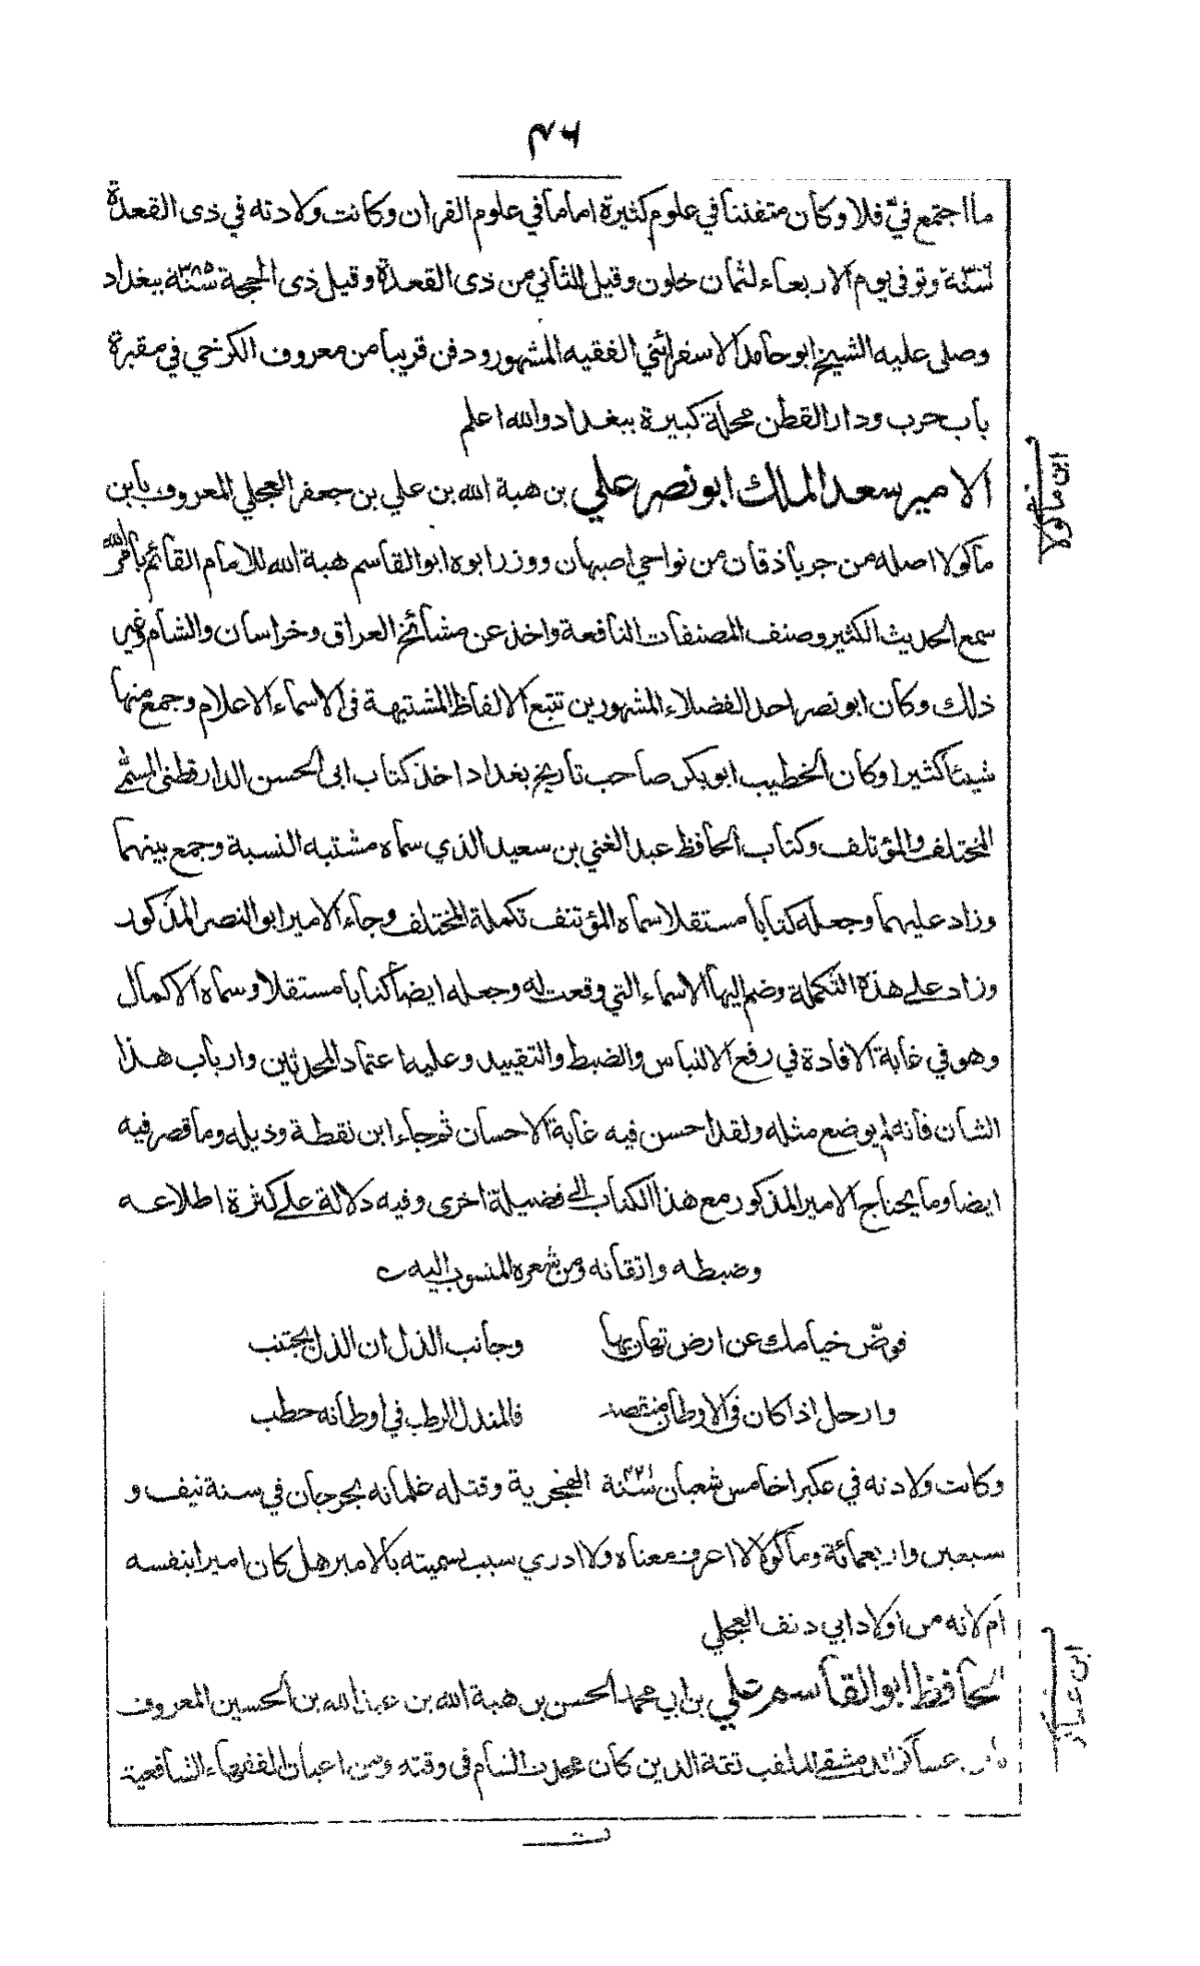 ٤٦
ما اجتمع فيّ فلا وكان متفننا في علوم كثيرة اماما في علوم القران وكانت ولادته في ذى القعدة
وتوفى يوم الاربعاء لثمان خلون وقيل الثاني من ذى القعدة وقيل ذى الحجة سنة ٣٨٥ ببغداد
وصلى عليه الشيخ ابو حامد الاسفرائني الفقيه المشهور ودفن قريبا من معروف الكرخي في مقبرة
باب حرب ودار القطن محلة كبيرة ببغداد والله اعلم
الامير سعد الملك ابو نصر علي بن هبة الله بن علي بن جعفر العجلي المعروف بابن
ابن ماكولا
ماكولا اصله من جرباذقان من نواحي اصبهان ووزر ابوه ابو القاسم هبة الله للامام القائم بامر الله
سمع الحديث الكثير وصنف المصنفات النافعة واخذ عن مشائخ العراق وخراسان والشام وغير
ذلك وكان ابو نصر احد الفضلاء المشهورين تتبع الالفاظ المشتبهة فى الاسماء الاعلام وجمع منها
شيئا كثيرا وكان الخطيب ابو بكر صاحب تاريخ بغداد اخذ كتاب ابى الحسن الدارقطنى المسمى
المختلف والمؤتلف وكتاب الحافظ عبد الغني بن سعيد الذي سماه مشتبه النسبة وجمع بينهما
وزاد عليهما وجعله كتابا مستقلا سماه المؤتنف تكملة المختلف وجاء الامير ابو النصر المذكور
وزاد على هذه التكملة وضم اليها الاسماء التي وقعت له وجعله ايضا كتابا مستقلا وسماه الاكمال
وهو في غاية الافادة في رفع الالتباس والضبط والتقييد وعليه اعتماد المحدثين وارباب هذا
الشان فانه لم يوضع مثله ولقد احسن فيه غاية الاحسان ثم جاء ابن نقطة وذيله وما قصر فيه
ايضا وما يحتاج الامير المذكور مع هذا الكتاب الى فضيلة اخرى وفيه دلالة على كثرة اطلاعه
وضبطه واتقانه ومن شعره المنسوب اليه
قوّض خيامك عن ارض تهان بها وجانب الذل ان الذل يجتنب
وارحل اذا كان فى الاوطان منقصة فالمندل الرطب في اوطانه حطب
وكانت ولادته في عكبرا خامس شعبان سنة الهجرية وقتله غلمانه بجرجان في سنة نيف و
سبعين واربعمائة وماكولا لا اعرف معناه ولا ادري سبب تسميته بالامير هل كان اميرا بنفسه
أم لانه من اولاد ابي دنف العجلي
الحافظ ابو القاسم علي بن ابي محمد الحسن بن هبة الله بن عبد الله بن الحسين المعروف
ابن عساكر
بابن عساكر الدمشقي الملقب ثقة الدين كان محدث الشام فى وقته ومن اعيان الفقهاء الشافعية